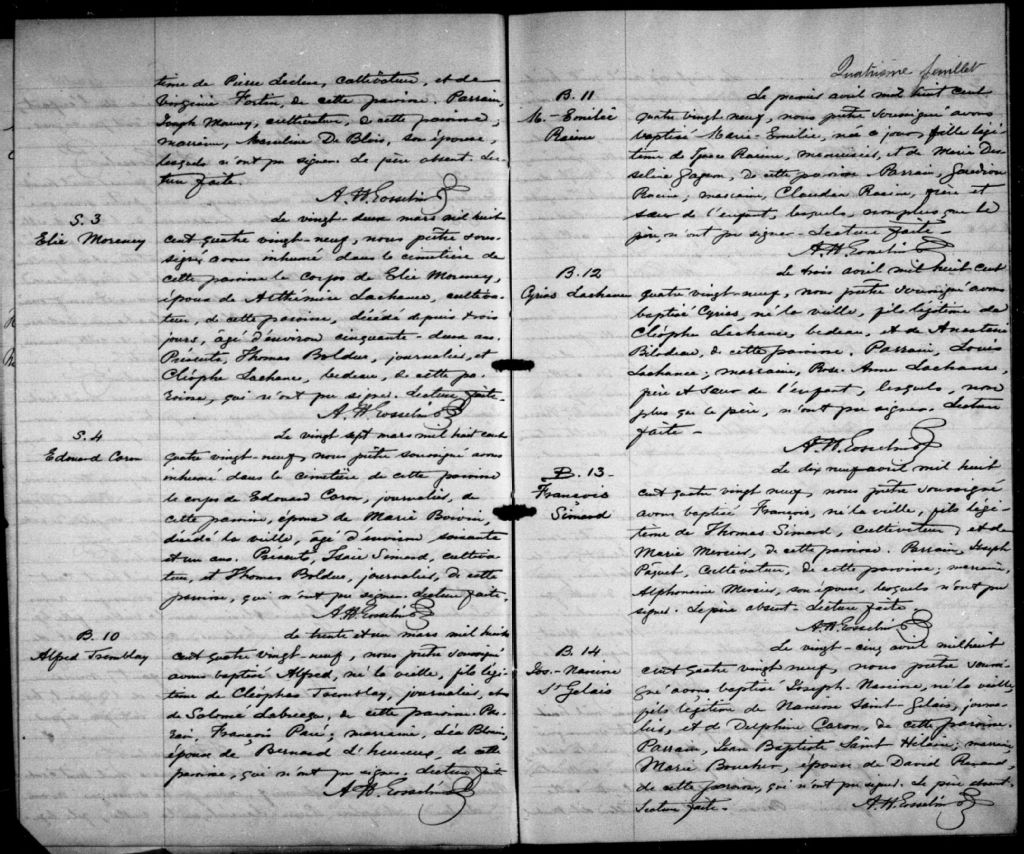 time de Pierre Leclerc, cultivateur, et de
Virginie Fortin, de cette paroisse. Parrain,
Joseph Morency, cultivateur, de cette paroisse;
marraine, Marceline De Blois, son épouse,
lesquels n'ont pu signer. Le père absent. Lec-
ture faite.
A. H. Gosselin
S. 3
Elie Morency
Le vingt-deux mars mil huit
cent quatre vingt-neuf, nous prêtre sous-
signé avons inhumé dans le cimetière de
cette paroisse le corps de Elie Morency,
époux de Arthémise Lachance, cultiva-
teur, de cette paroisse, décédé depuis trois
jours, âgé d'environ cinquante-deux ans.
Présents, Thomas Bolduc, journalier, et
Cléophe Lachance, bedeau, de cette pa-
roisse, qui n'ont pu signer. Lecture faite.
A. H. Gosselin
S. 4
Edouard Caron
Le vingt sept mars mil huit cent
quatre vingt-neuf, nous prêtre soussigné avons
inhumé dans le cimetière de cette paroisse
le corps de Edouard Caron, journalier, de
cette paroisse, époux de Marie Boivin,
décédé la veille, âgé d'environ soixante
et un ans. Présents, Isaïe Simard, cultiva-
teur, et Thomas Bolduc, journalier, de cette
paroisse, qui n'ont pu signer. Lecture faite.
A. H. Gosselin
B. 10
Alfred Tremblay
Le trente et un mars mil huit
cent quatre vingt-neuf, nous prêtre soussigné
avons baptisé Alfred, né la veille, fils légi-
time de Cléophas Tremblay, journalier, et
de Salomé Labrecque, de cette paroisse. Par-
rain, François Paré; marraine, Léa Blouin,
épouse de Bernard L'heureux, de cette
paroisse, qui n'ont pu signer. Lecture faite
A. H. Gosselin
Quatrième feuillet
B. 11
M.-Emilie
Racine
Le premier avril mil huit cent
quatre vingt-neuf, nous prêtre soussigné avons
baptisé Marie-Emilie, née ce jour, fille légi-
time de Ignace Racine, menuisier, et de Marie
Gagnon, de cette paroisse. Parrain, Gaudiose
Racine; marraine, Claudia Racine, frère et
sœur de l'enfant, lesquels, non plus que le
père, n'ont pu signer. Lecture faite.
A. H. Gosselin
B. 12
Cyrias Lachance
Le trois avril mil huit cent
quatre vingt-neuf, nous prêtre soussigné avons
baptisé Cyrias, né la veille, fils légitime de
Cléophe Lachance, bedeau, et de Anastasie
Bilodeau, de cette paroisse. Parrain, Louis
Lachance; marraine, Rose-Anna Lachance,
frère et sœur de l'enfant, lesquels, non
plus que le père, n'ont pu signer. Lecture
faite -
A. H. Gosselin
B. 13
François
Simard
Le dix neuf avril mil huit
cent quatre vingt neuf, nous prêtre soussigné
avons baptisé François, né la veille, fils légi-
time de Thomas Simard, cultivateur, et de
Marie Mercier, de cette paroisse. Parrain, Joseph
Paquet, cultivateur, de cette paroisse; marraine,
Alphonsine Mercier, son épouse, lesquels n'ont pu
signer. Le père absent. Lecture faite.
A. H. Gosselin
B. 14
Jos.-Narcisse
St Gelais
Le vingt-cinq avril mil huit
cent quatre vingt neuf, nous prêtre soussi-
gné avons baptisé Joseph-Narcisse, né la veille,
fils légitime de Narcisse Saint-Gelais, journa-
lier, et de Delphine Caron, de cette paroisse.
Parrain, Jean Baptiste Saint Hilaire; marraine,
Marie Boucher, épouse de David Renaud,
de cette paroisse, qui n'ont pu signer. Le père absent.
Lecture faite.
A. H. Gosselin